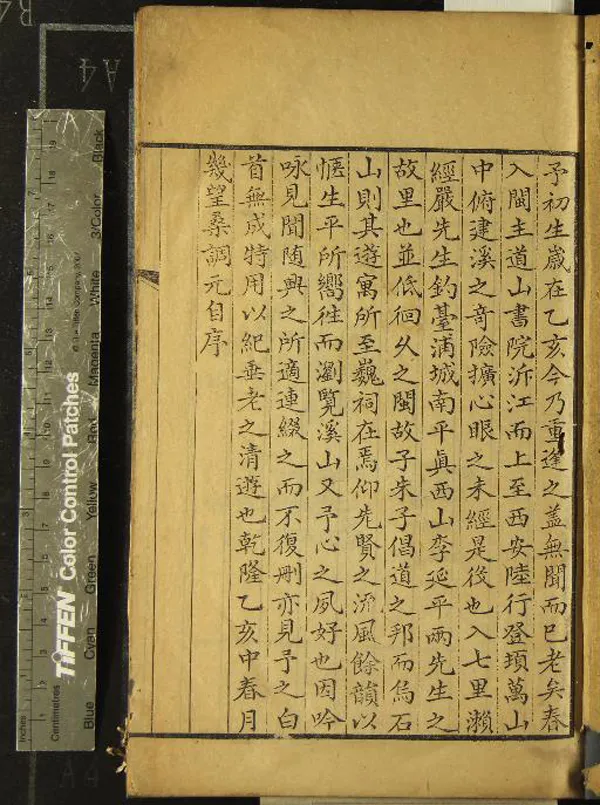 予初生歲在乙亥今乃重逢之蓋無聞而已老矣春
入閩主道山書院泝江而上至西安陸行登頓萬山
中俯建溪之奇險擴心眼之未經是役也入七里瀨
經嚴先生釣臺浦城南平眞西山李延平兩先生之
故里也並低徊久之閩故子朱子倡道之邦而烏石
山則其遊寓所至巍祠在焉仰先賢之流風餘韻以
愜生平所嚮往而瀏覽溪山又予心之夙好也因吟
咏見聞随興之所適連綴之而不復刪亦見予之白
首無成特用以紀垂老之清遊也乾隆乙亥中春月
幾望桑調元自序
TIFFEN Color Control Patches
© The Tiffen Company, 2007
Inches
Centimetres
Blue Cyan Green Yellow Red Magenta White 3/Color Black
1 2 3 4 5 6 7 8 9 10 11 12 13 14 15 16 17 18 19
A4
R4